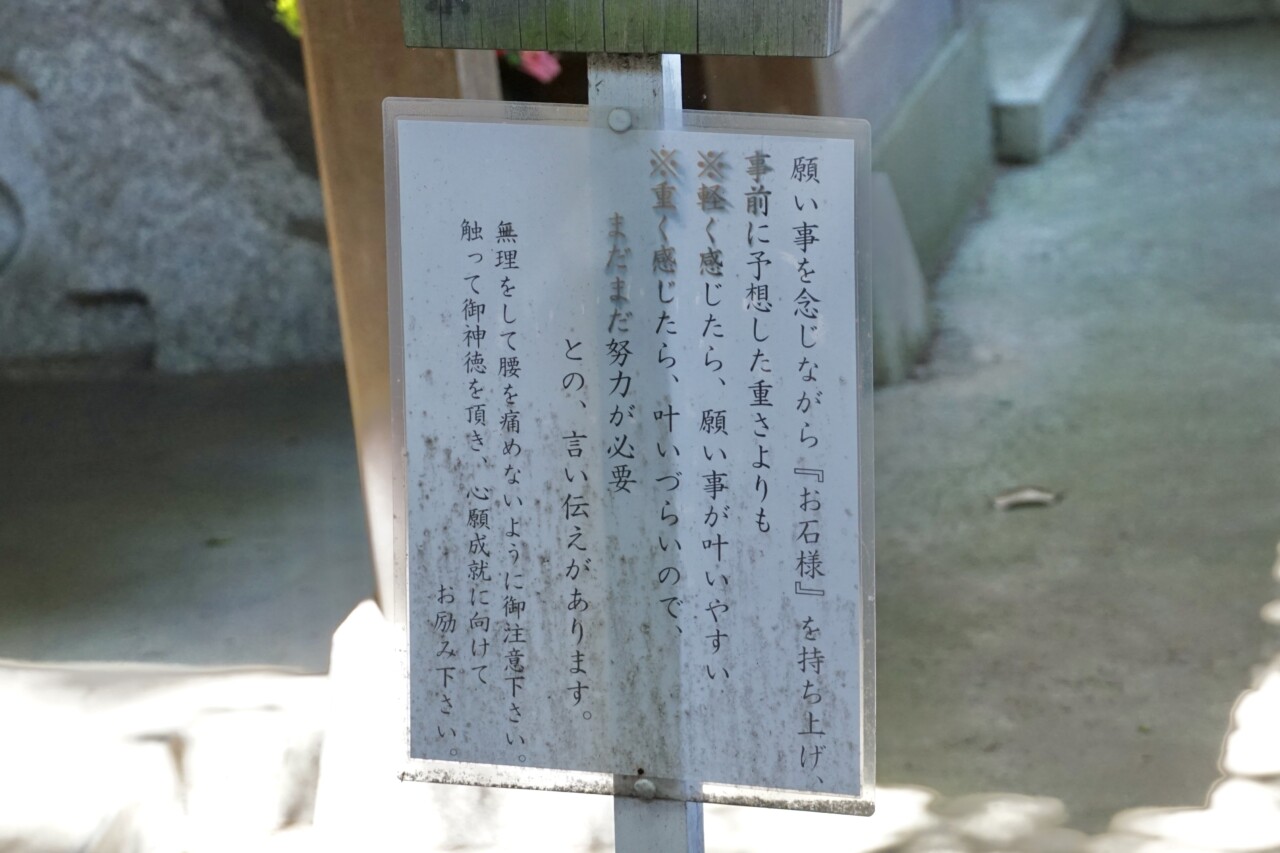 願い事を念じながら『お石様』を持ち上げ、
事前に予想した重さよりも
※軽く感じたら、願い事が叶いやすい
※重く感じたら、叶いづらいので、
まだまだ努力が必要
との、言い伝えがあります。
無理をして腰を痛めないように御注意下さい。
触って御神徳を頂き、心願成就に向けて
お励み下さい。